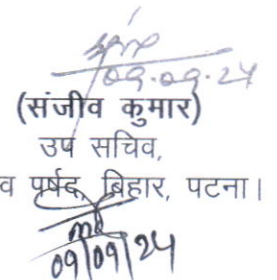 09.09.24
(संजीव कुमार)
उप सचिव,
व पर्षद, बिहार, पटना।
09/09/24